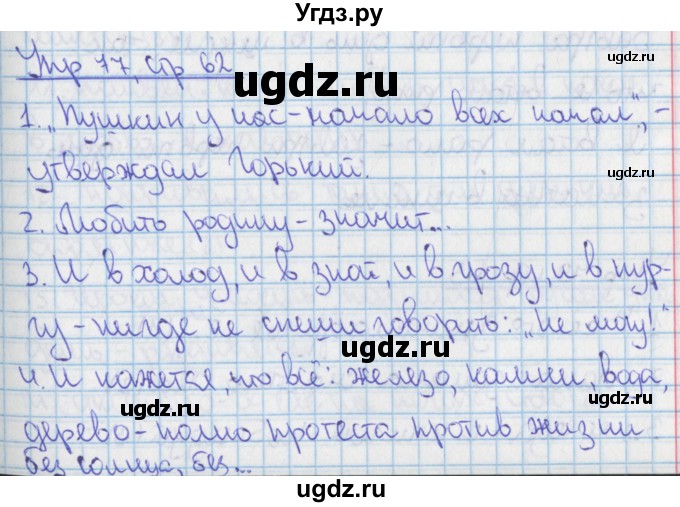 Угдз.ру
Упр 77, стр 62
1. „Пушкин у нас – начало всех начал", –
утверждал Горький.
2. Любить родину – значит...
3. И в холод, и в зной, и в грозу, и в пур-
гу – нигде не спеши говорить: „Не могу!"
4. И кажется, что всё: железо, камни, вода,
дерево – полно протеста против жизни
без солнца, без...
ugdz.ru
ugdz.ru
ugdz.ru
ugdz.ru
ugdz.ru
ugdz.ru
ugdz.ru
ugdz.ru
ugdz.ru